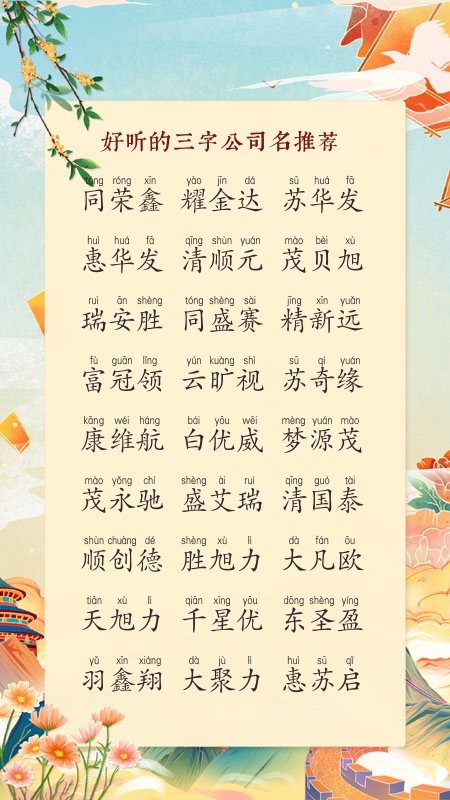 好听的三字公司名推荐
tóng róng xīn yào jīn dá sū huá fā
同荣鑫 耀金达 苏华发
huì huá fā qīng shùn yuán mào bèi xù
惠华发 清顺元 茂贝旭
ruì ān shèng tóng shèng sài jīng xīn yuǎn
瑞安胜 同盛赛 精新远
fù guān lǐng yún kuàng shì sū qí yuán
富冠领 云旷视 苏奇缘
kāng wéi háng bái yōu wēi mèng yuán mào
康维航 白优威 梦源茂
mào yǒng chí shèng ài ruì qīng guó tài
茂永驰 盛艾瑞 清国泰
shùn chuàng dé shèng xù lì dà fán ōu
顺创德 胜旭力 大凡欧
tiān xù lì qiān xīng yōu dōng shèng yíng
天旭力 千星优 东圣盈
yǔ xīn xiáng dà jù lì huì sū qǐ
羽鑫翔 大聚力 惠苏启